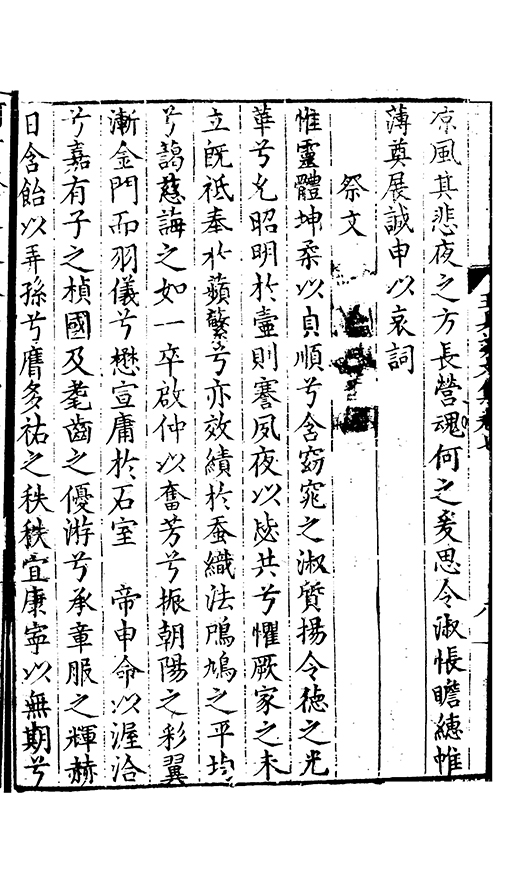 凉風其悲夜之方長營魂何之爰思令淑悵瞻繐帷
薄奠展誠申以哀詞
祭文
惟靈體坤柔以貞順兮含窈窕之淑質揚令德之光
華兮允昭明於壼則謇夙夜以毖共兮懼厥家之未
立旣祗奉於蘋蘩兮亦效績於蚕織法鳲鳩之平均
兮藹慈誨之如一卒啟仲以奮芳兮振朝陽之彩翼
漸金門而羽儀兮懋宣庸於石室 帝申命以渥洽
兮嘉有子之楨國及耄齒之優游兮承章服之輝赫
日含飴以弄孫兮膺多祐之秩秩宜康寧以無期兮